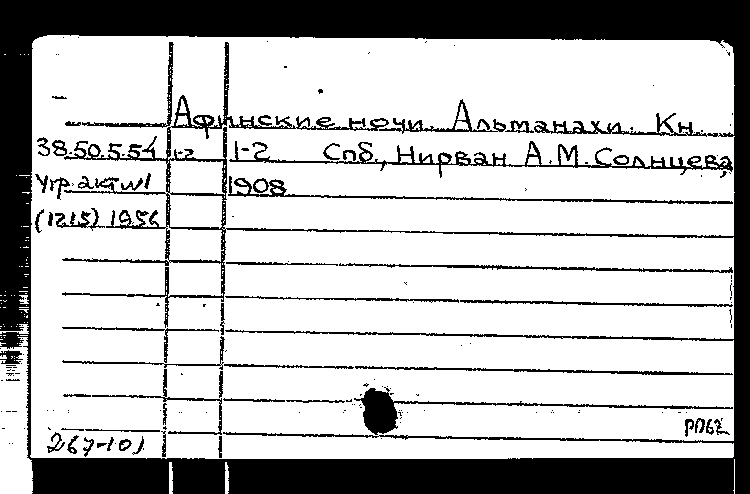 Афинские ночи. Альманахи. Кн.
38.50.5.54 1-2 1-2 Спб., Нирван А.М. Солнцева,
Утр. акт №1 1908
(1215) 1956
267-101